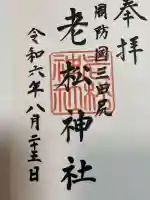 奉拝
周防国三田尻
老松神社
令和六年八月二十三日